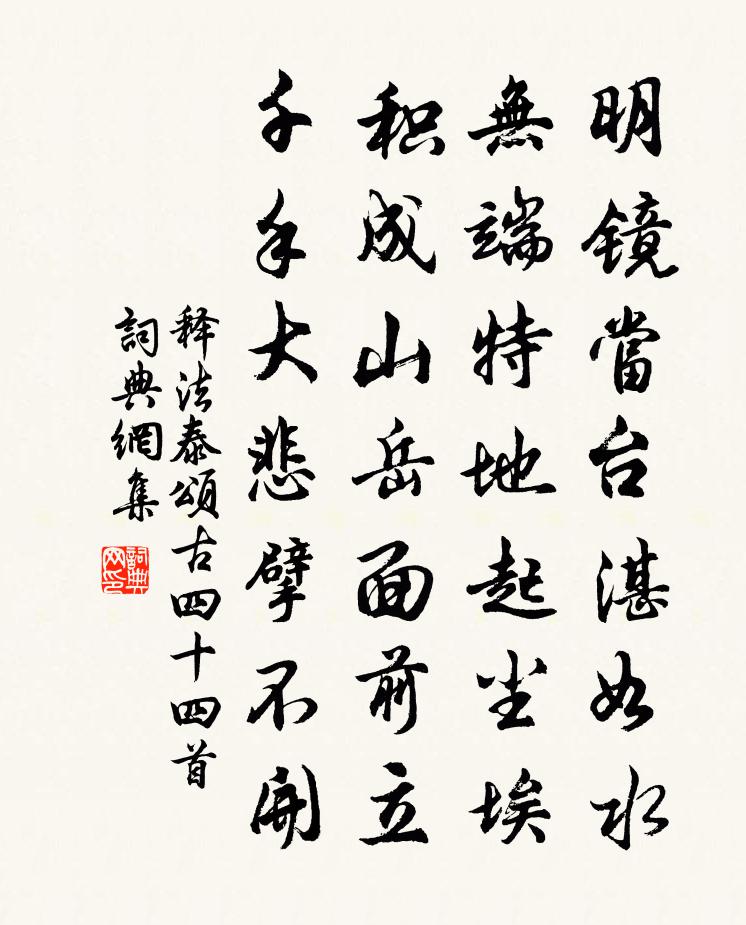 明镜當台湛如水
無端特地起尘埃
积成山岳面前立
千手大悲擘不開
释法泰頌古四十四首
詞典網集
詞典网印